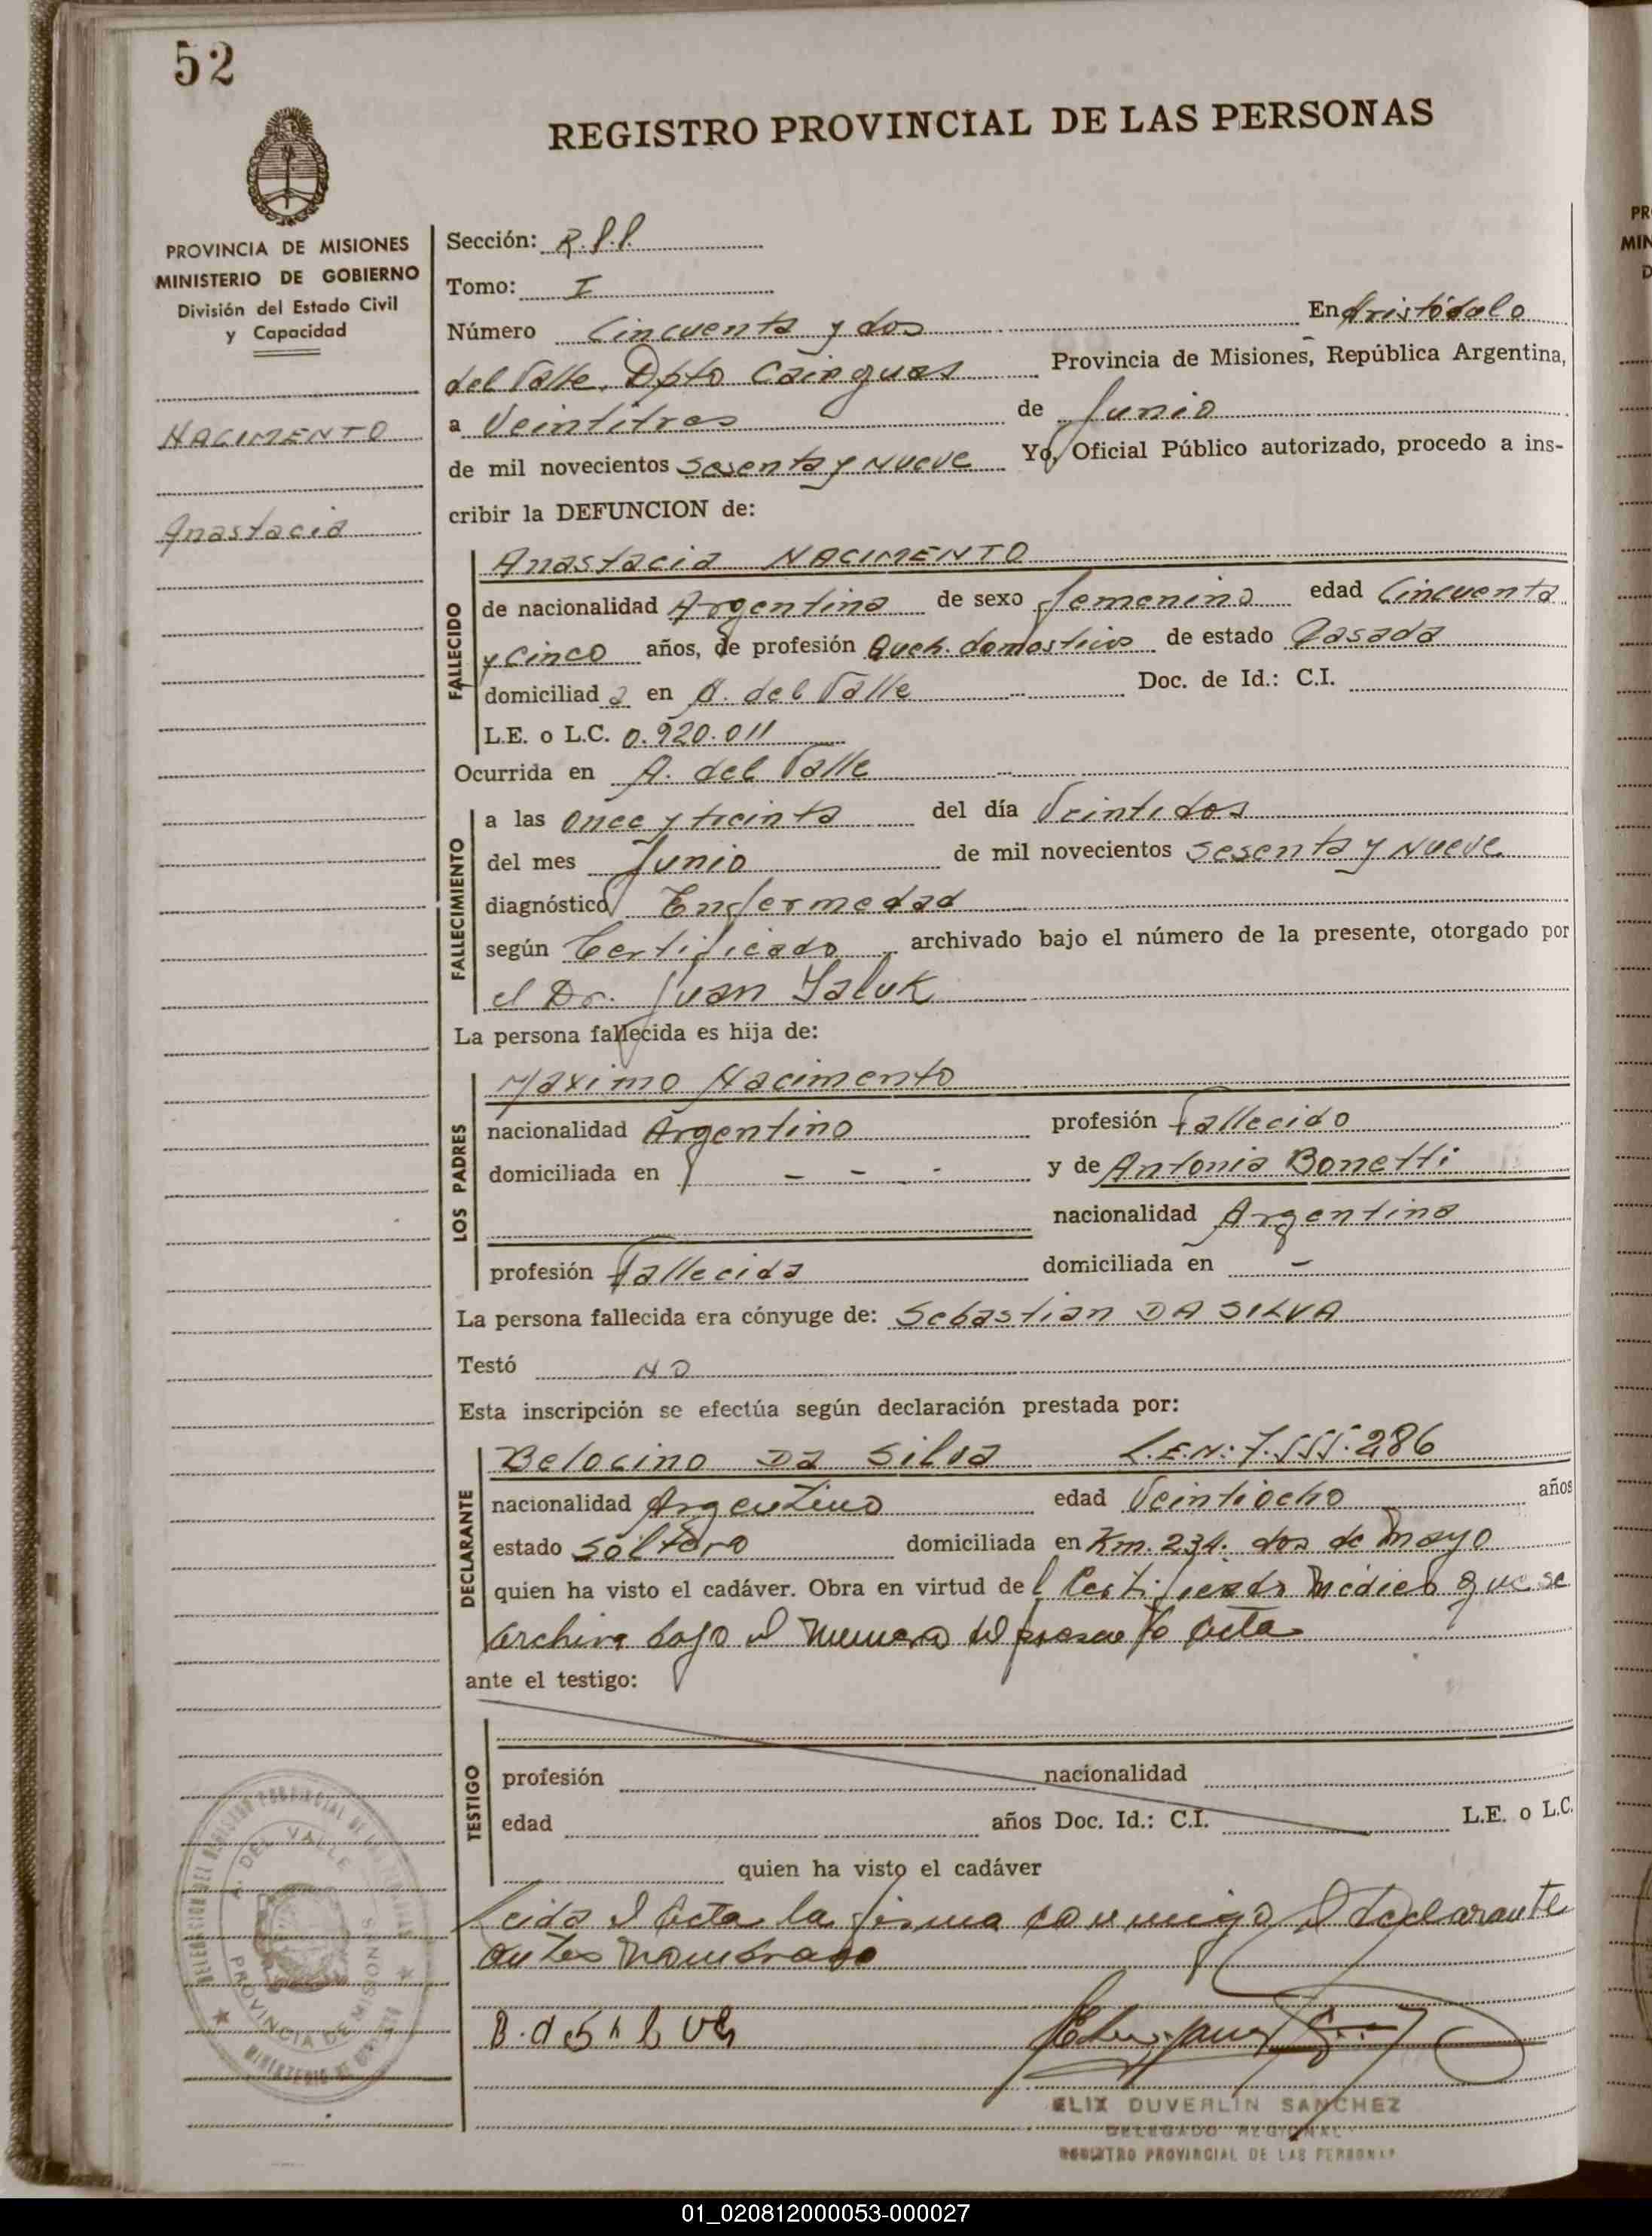 52
REGISTRO PROVINCIAL DE LAS PERSONAS
PROVINCIA DE MISIONES
MINISTERIO DE GOBIERNO
División del Estado Civil
y Capacidad
NACIMENTO
Anastacia
Sección: R.P.P.
Tomo: I
Número Cincuenta y dos En Aristóbulo
del Valle, Dpto Cainguas Provincia de Misiones, República Argentina,
a Veintitres de Junio
de mil novecientos sesenta y nueve Yo, Oficial Público autorizado, procedo a ins-
cribir la DEFUNCION de:
FALLECIDO
Anastacia NACIMENTO
de nacionalidad Argentina de sexo femenino edad Cincuenta
y cinco años, de profesión Queh. domesticos de estado Casada
domiciliad a en A. del Valle Doc. de Id.: C.I.
L.E. o L.C. 0.920.011
Ocurrida en A. del Valle
FALLECIMIENTO
a las once y treinta del día Veintidos
del mes Junio de mil novecientos sesenta y nueve
diagnóstico Enfermedad
según Certificado archivado bajo el número de la presente, otorgado por
el Dr. Juan Yaluk
La persona fallecida es hija de:
LOS PADRES
Maximo Nacimento
nacionalidad Argentino profesión fallecido
domiciliada en - - - y de Antonia Bonetti
nacionalidad Argentina
profesión fallecida domiciliada en -
La persona fallecida era cónyuge de: Sebastian DA SILVA
Testó NO
Esta inscripción se efectúa según declaración prestada por:
DECLARANTE
Belocino Da Silva L.E.N: 7.555.286
nacionalidad Argentino edad Veintiocho años
estado soltero domiciliada en Km. 234. dos de mayo
quien ha visto el cadáver. Obra en virtud del Certificado Médico que se
archiva bajo el numero del presente acta
ante el testigo:
TESTIGO
profesión nacionalidad
edad años Doc. Id.: C.I. L.E. o L.C.
quien ha visto el cadáver
Leida el Acta la firma conmigo el declarante
antes nombrado
A. DEL VALLE
PROVINCIA DE MISIONES
ELIX DUVERLIN SANCHEZ
DELEGADO REGIONAL
REGISTRO PROVINCIAL DE LAS PERSONAS
01_020812000053-000027